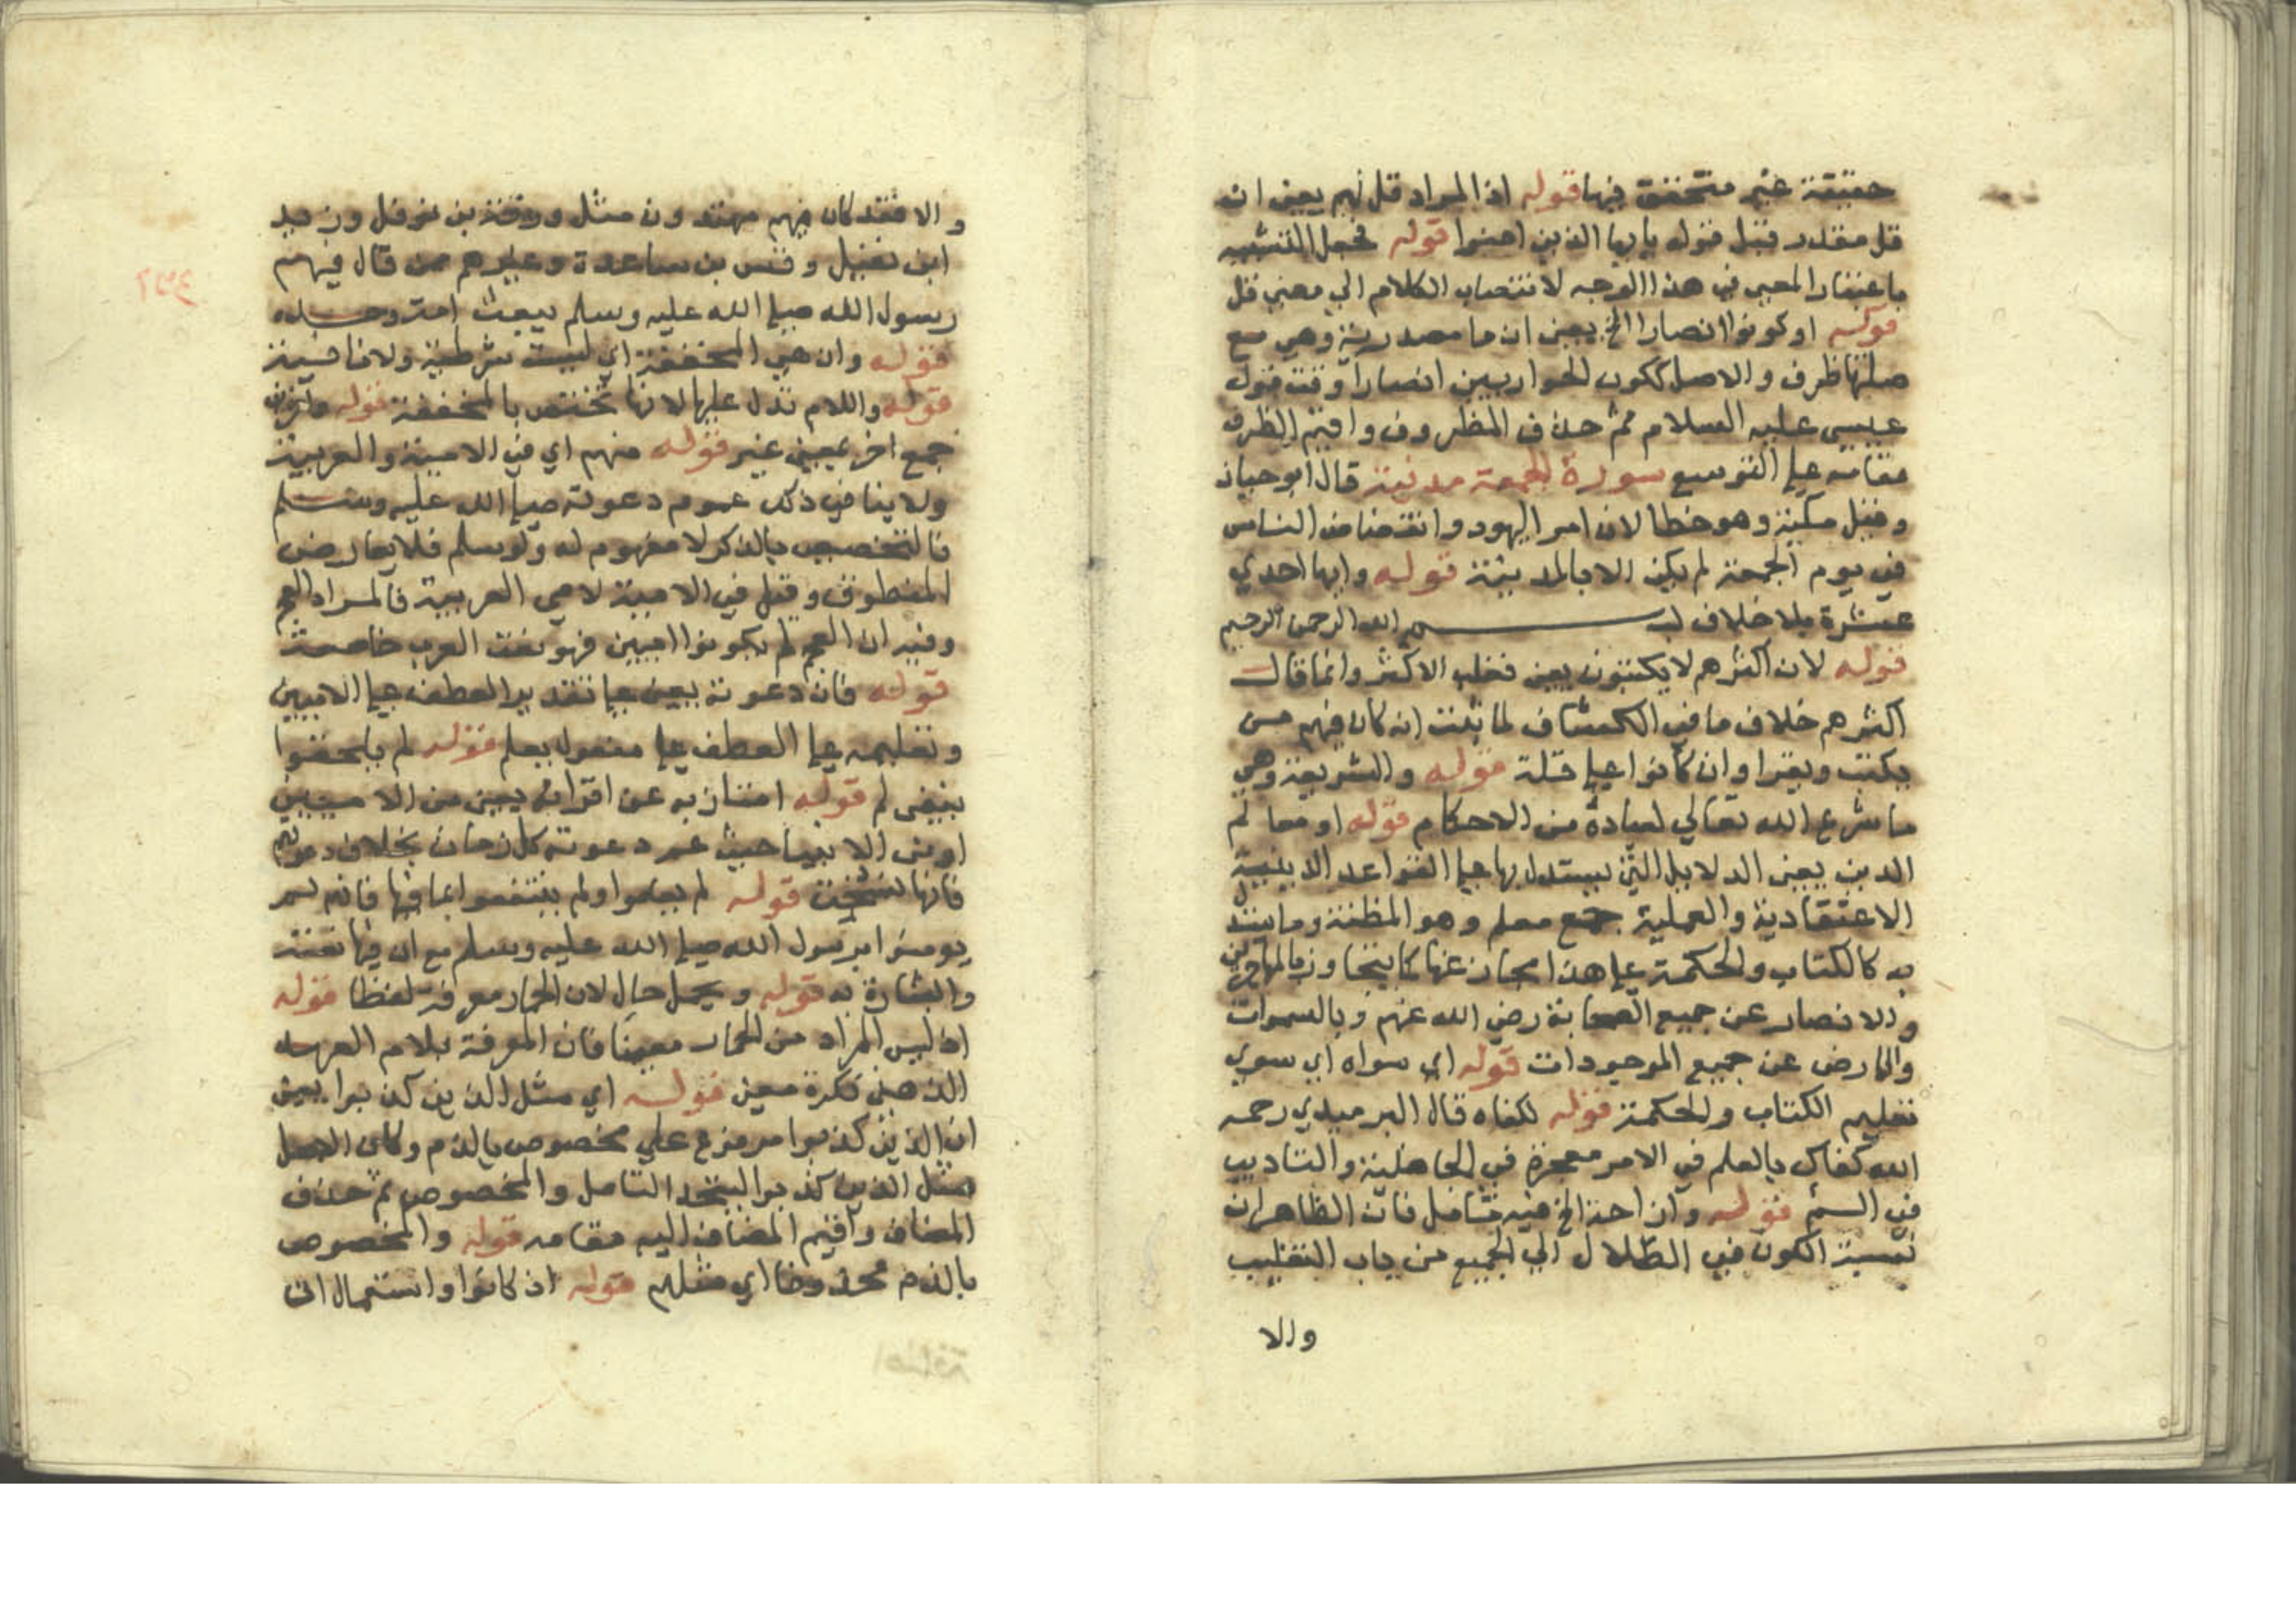 حقيقة غير متحققة فيها قوله اذ المراد قل لهم يعني ان
قل مقدر قبل قوله يا ايها الذين امنوا قوله فجعل التشبيه
باعتبار المعنى في هذا الوجه لانتصاب الكلام الي معني قل
قوله او كونوا انصارا الخ يعني ان ما مصدرية وهي مع
صلتها ظرف والاصل ككون الحواريين انصارا وقت قول
عيسي عليه السلام ثم حذف المظروف واقيم الظرف
مقامه علي التوسع سورة الجمعة مدنية قال ابو حيان
وقيل مكية وهو خطا لان امر اليهود وانفضاض الناس
في يوم الجمعة لم يكن الا بالمدينة قوله وايها احدي
عشرة بلا خلاف بسم الله الرحمن الرحيم
قوله لان اكثرهم لا يكتبون يعني فغلب الاكثر وانما قال
اكثرهم خلاف ما في الكشاف لما ثبت انه كان فيهم من
يكتب ويقرا وان كانوا علي قلة قوله والشريعة وهي
ما شرع الله تعالي لعباده من الاحكام قوله او معالم
الدين يعني الدلايل التي يستدل بها علي القواعد الدينية
الاعتقادية والعملية جمع معلم وهو المظنة وما يستدل
به كالكتاب والحكمة علي هذا مجاز عنها كما يتجاوز بالمهاجرين
والانصار عن جميع الصحابة رضي الله عنهم وبالسموات
والارض عن جميع الموجودات قوله اي سواه اي سوي
تعليم الكتاب والحكمة قوله لكفاه قال البوصيري رحمه
الله كفاك بالعلم في الامي معجزة في الجاهلية والتاديب
في اليتم قوله وازاحة الخ فيه تامل فان الظاهر ان
نسبة الكون في الضلال الي الجميع من باب التغليب
والا
والا فقد كان فيهم مهتدون مثل ورقة بن نوفل وزيد
ابن نفيل وقس بن ساعدة وغيرهم ممن قال فيهم
رسول الله صلي الله عليه وسلم يبعث امة وحده
قوله وان هي المخففة اي ليست شرطية ولا نافية
قوله واللام تدل عليها لانها تختص بالمخففة قوله وآخرين
جمع اخر بمعني غير قوله منهم اي في الامية والعربية
ولا ينافي ذلك عموم دعوته صلي الله عليه وسلم
فالتخصيص بالذكر لا مفهوم له ولو سلم فلا يعارض
المنطوق وقيل في الامية لا في العربية فالمراد العجم
وفيه ان العجم لم يكونوا اميين فهو نعت العرب خاصة
قوله فان دعوته يعني علي تقدير العطف علي الاميين
وتعليمه علي العطف علي مفعول يعلم قوله لم يلحقوا
بنفي لم قوله امتاز به عن اقرانه يعني من الاميين
او من الانبيا حيث عم دعوته كل زمان بخلاف دعوتهم
فانها نسخت قوله لم يعلموا ولم ينتفعوا بما فيها فانهم لم
يومنوا برسول الله صلي الله عليه وسلم مع ان فيها نعته
والبشارة به قوله ويحمل حال لان الحمار معرفة لفظا قوله
اذ ليس المراد من الحمار معينا فان المعرفة بلام العهد
الذهني نكرة معني قوله اي مثل الذين كذبوا يعني
ان الذين كذبوا مرفوع علي مخصوص بالذم وكان الاصل
مثل الذين كذبوا ليتحد الفاعل والمخصوص ثم حذف
المضاف واقيم المضاف اليه مقامه قوله والمخصوص
بالذم محذوفا اي مثلهم قوله اذ كانوا واستعمال ان